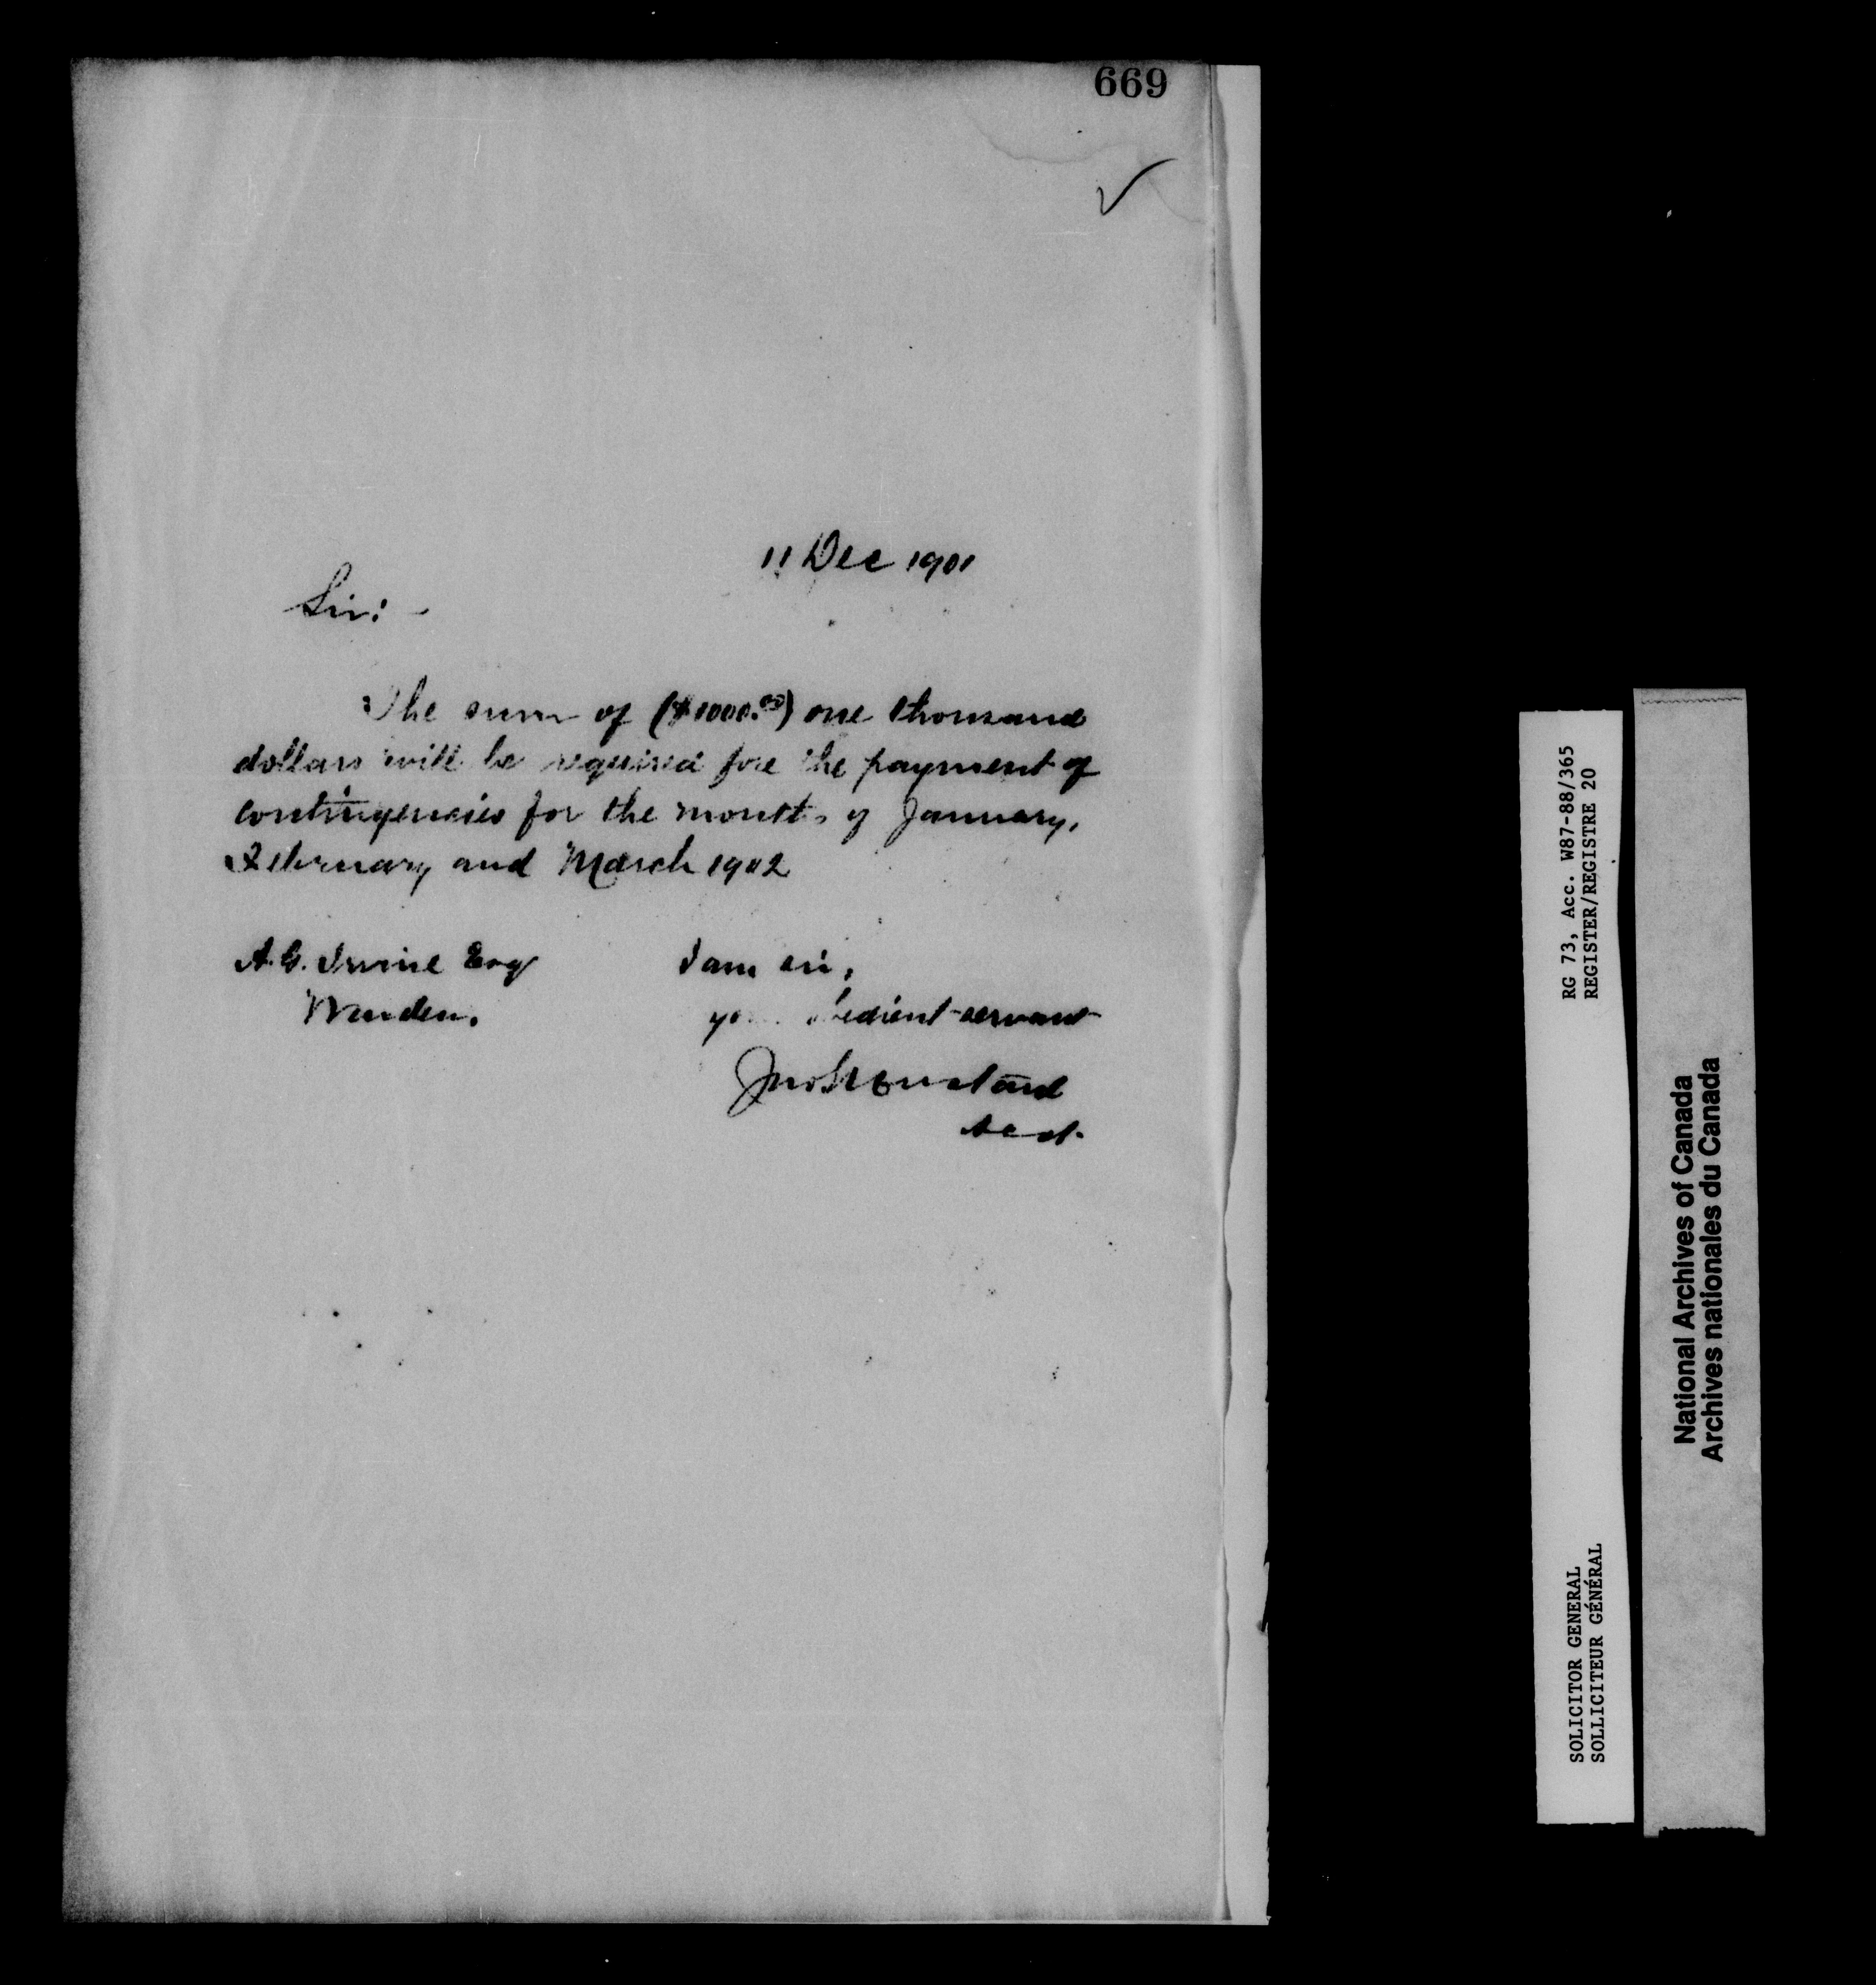 669
11 Dec 1901
Sir: -
The sum of ($1000.00) one thousand
dollars will be required for the payment of
contingencies for the months of January,
February and March 1902
A. G. Irvine Esq
Warden.
I am sir,
your obedient servant
Acct.
RG 73, Acc. W87-88/365
REGISTER/REGISTRE 20
SOLICITOR GENERAL
SOLLICITEUR GÉNÉRAL
National Archives of Canada
Archives nationales du Canada